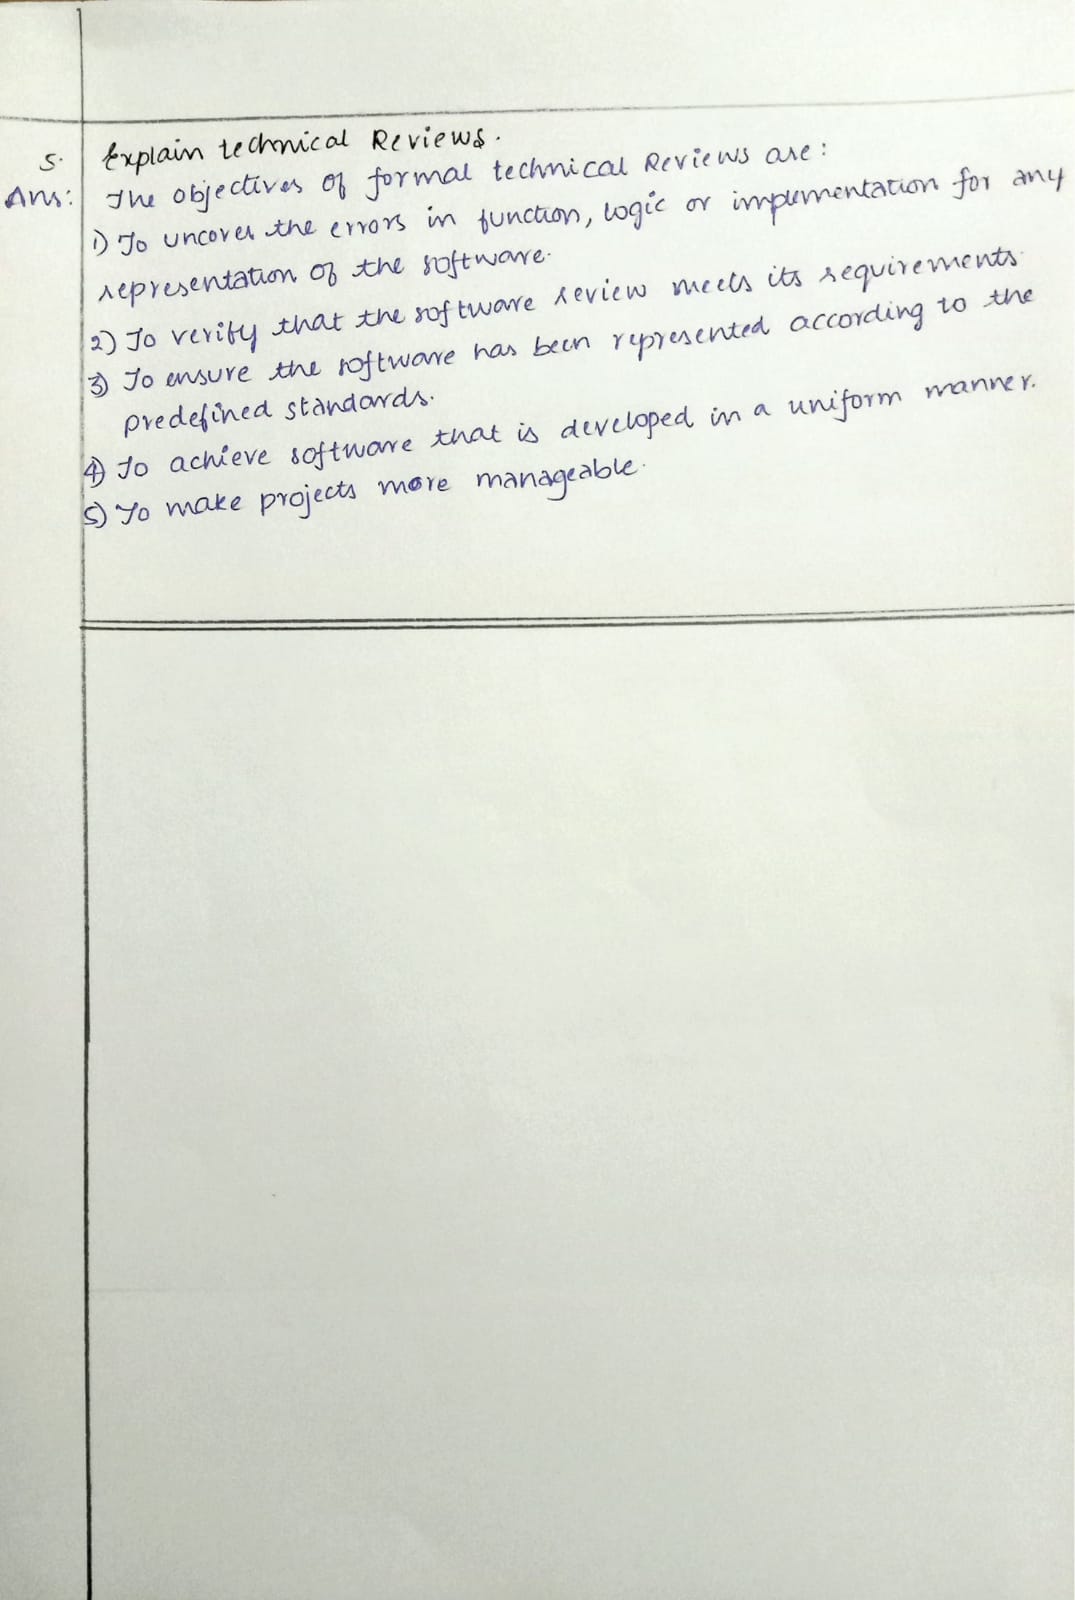 5. Explain technical Reviews.
Ans: The objectives of formal technical Reviews are:
1) To uncover the errors in function, logic or implementation for any
representation of the software.
2) To verify that the software review meets its requirements.
3) To ensure the software has been represented according to the
predefined standards.
4) To achieve software that is developed in a uniform manner.
5) To make projects more manageable.